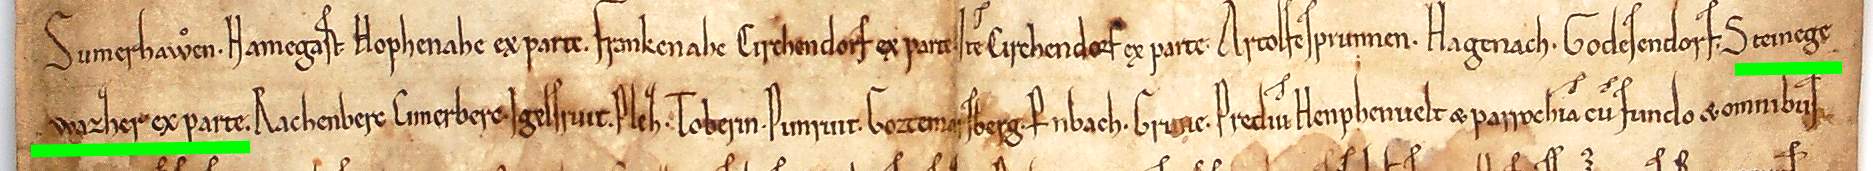 Sumerhaẘen. Hamegast Hophenahe ex parte. Frankenahe Circhendorf ex parte. Ite Circhendorf ex parte. Artolfesprunnen. Hagenach. Godesendorf. Steinege
wazher ex parte. Rachenberc Cimerberc. Igelsruit. Ploh. Toberin. Punruit. Gozcemarsberg. Ernbach. Grune. Prediu Henphenvelt & parrochia cu fundo & omnibus